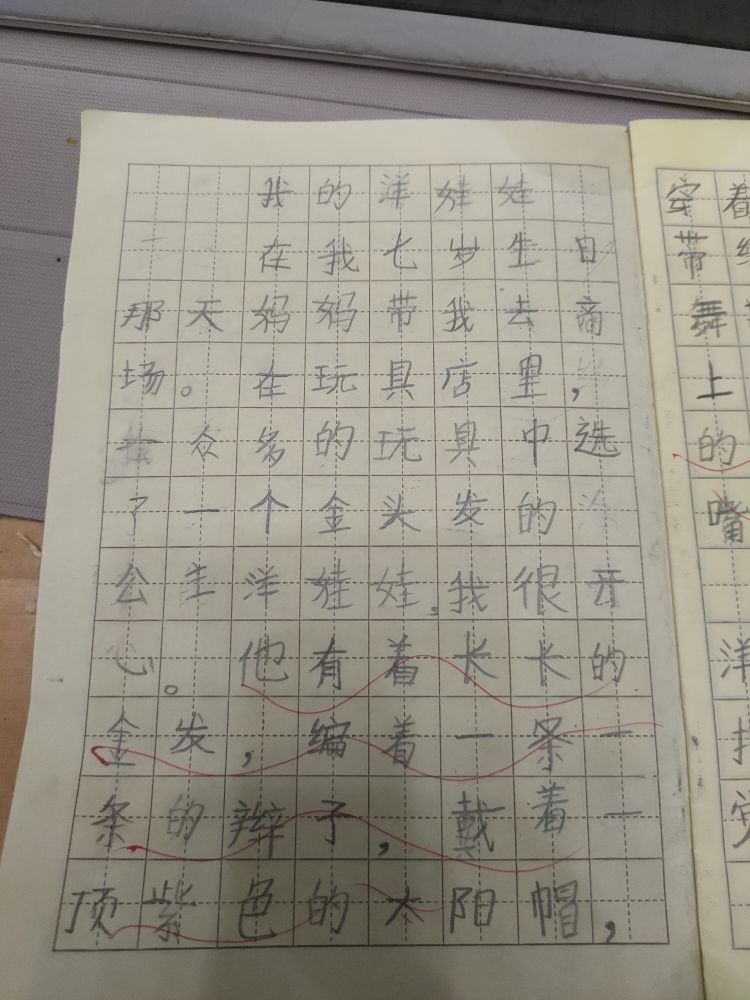 我的洋娃娃
在我七岁生日
那天妈妈带我去商
场。在玩具店里,
众多的玩具中选
了一个金头发的
公主洋娃娃.我很开
心。他有着长长的
金发,编着一条一
条的辫子,戴着一
顶紫色的太阳帽,
穿着
带
舞
上
的
嘴
洋